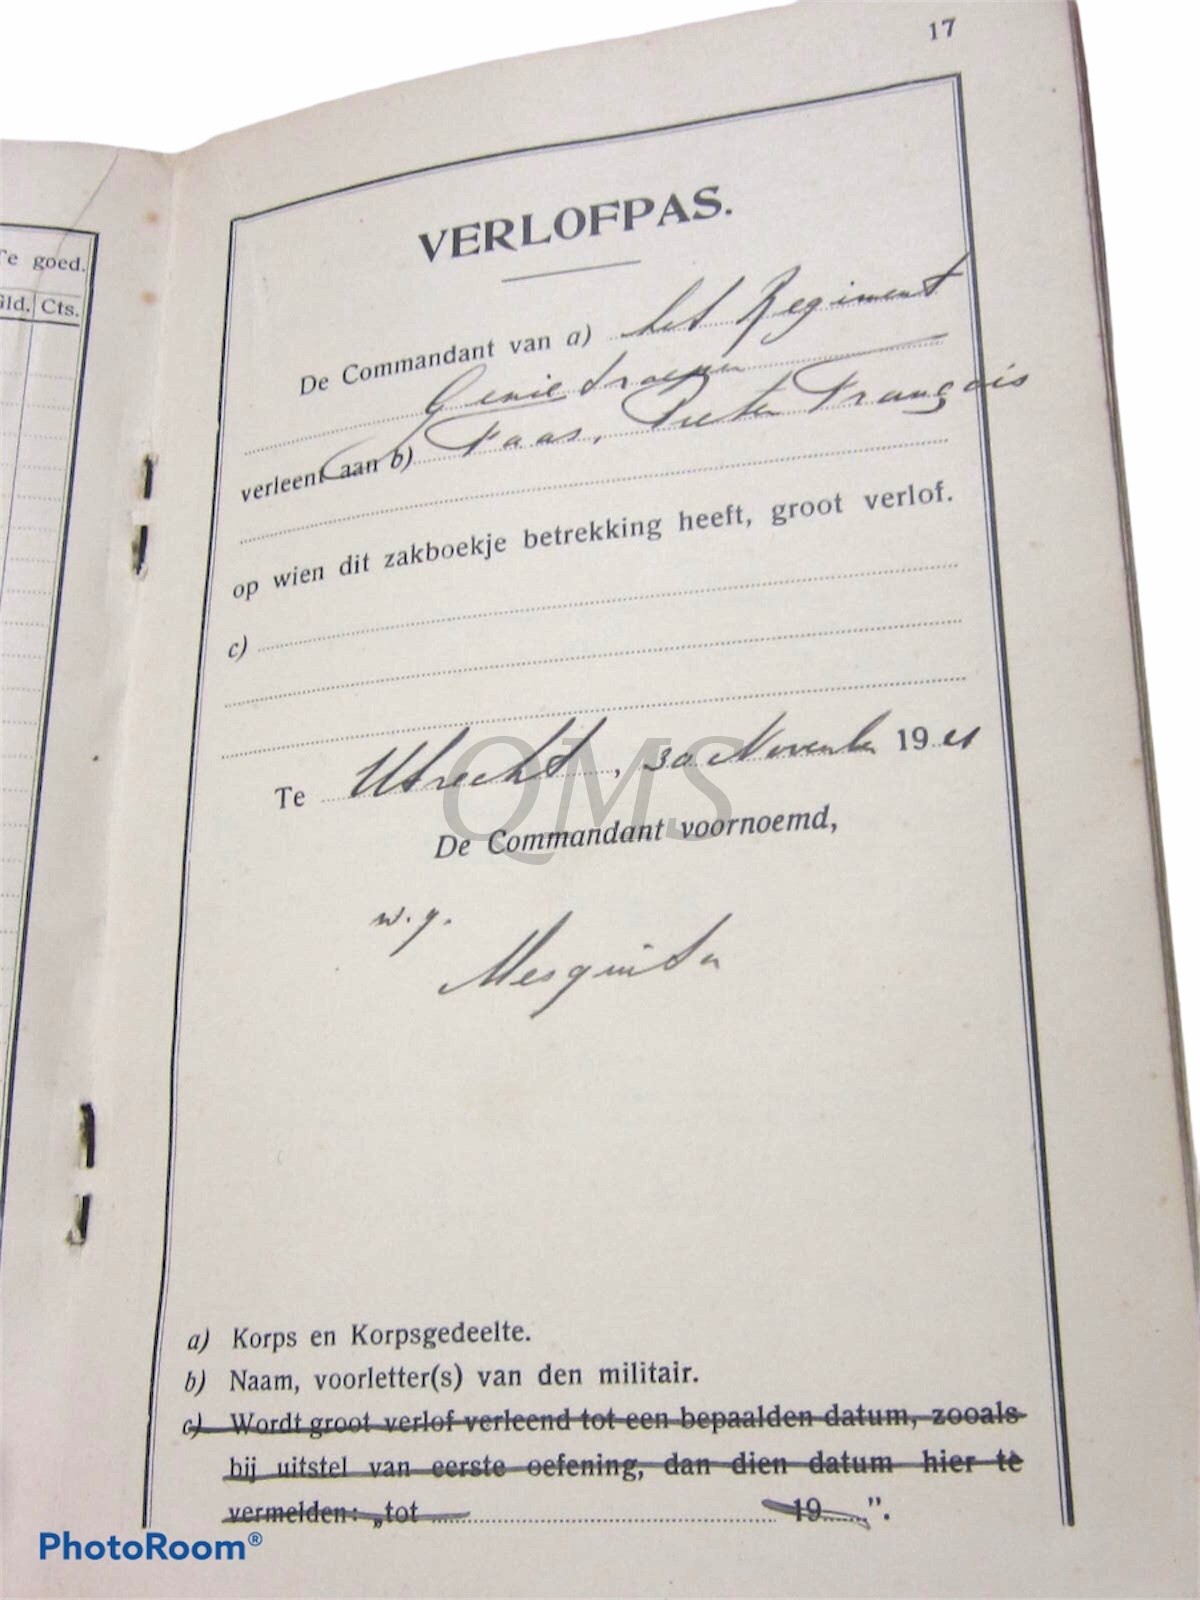 17
Te goed.
Gld. Cts.
VERLOFPAS.
De Commandant van a) het Regiment
Genietroepen
verleent aan b) Faas, Pieter François
op wien dit zakboekje betrekking heeft, groot verlof.
c)
Te Utrecht, 30 November 1921
QMS
De Commandant voornoemd,
w.g.
Mesquita
a) Korps en Korpsgedeelte.
b) Naam, voorletter(s) van den militair.
c) Wordt groot verlof verleend tot een bepaalden datum, zooals
bij uitstel van eerste oefening, dan dien datum hier te
vermelden: „tot 19 ”.
PhotoRoom®